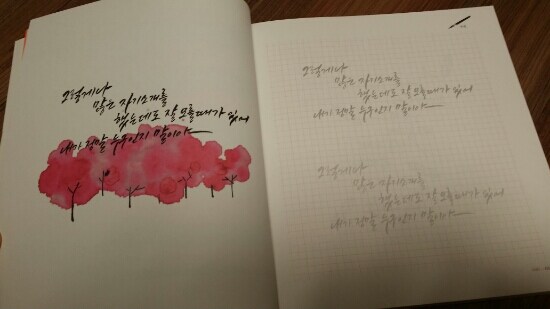 그렇게나
많은 자기소개를
했는데도 잘 모를때가 있어
내가 정말 누구인지 말이야
그렇게나
많은 자기소개를
했는데도 잘 모를때가 있어
내가 정말 누구인지 말이야
그렇게나
많은 자기소개를
했는데도 잘 모를때가 있어
내가 정말 누구인지 말이야